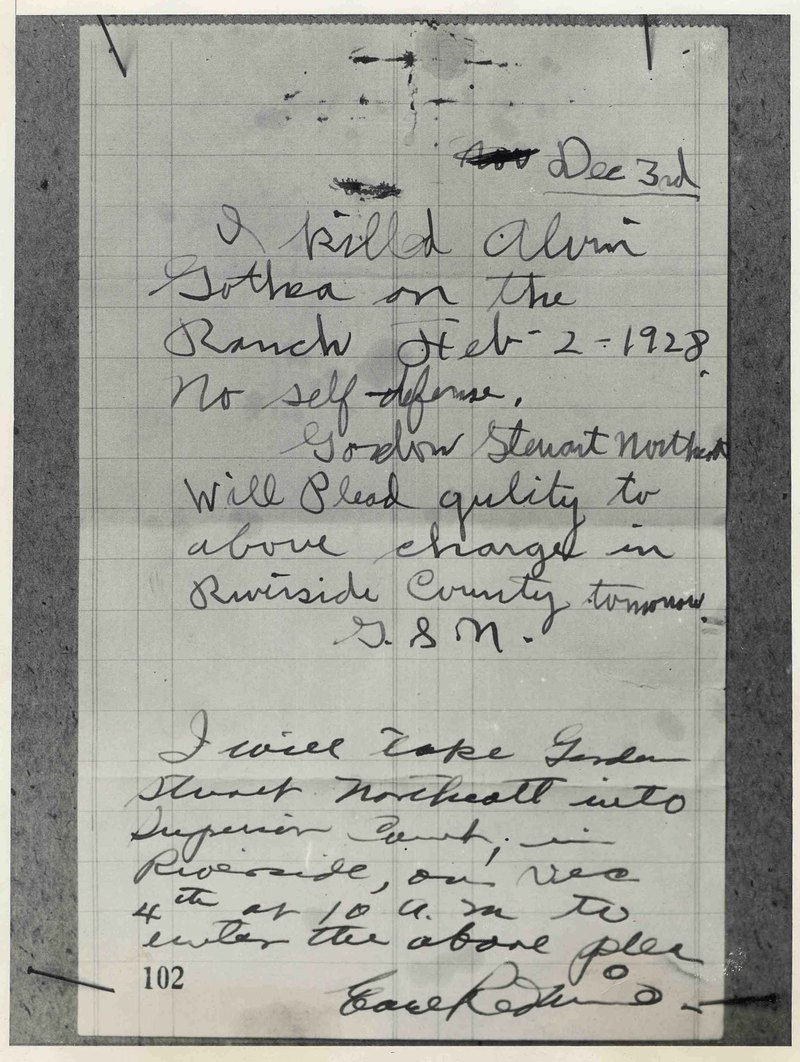 Nov Dec 3rd
I killd Alvin
Gothea on the
Ranch Feb - 2 - 1928
No self-defense.
Gordon Stewart Northcott
Will Plead gulity to
above charge in
Riverside County tomorrow.
G. S N.
I will take Gordon
Stuart Northcott into
Superior Court, in
Riverside, on Dec
4th at 10 A.M to
enter the above plea
102
Earl Redwine